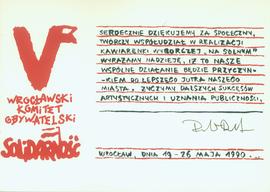 V
WROCŁAWSKI
KOMITET
OBYWATELSKI
SOLIDARNOŚĆ
SERDECZNIE DZIĘKUJEMY ZA SPOŁECZNY,
TWÓRCZY WSPÓŁUDZIAŁ W REALIZACJI
KAWIARENKI WYBORCZEJ „NA SOLNYM”
WYRAŻAMY NADZIEJĘ, IŻ TO NASZE
WSPÓLNE DZIAŁANIE BĘDZIE PRZYCZYN-
-KIEM DO LEPSZEGO JUTRA NASZEGO
MIASTA. ŻYCZYMY DALSZYCH SUKCESÓW
ARTYSTYCZNYCH I UZNANIA PUBLICZNOŚCI.
WROCŁAW, DNIA 19-26 MAJA 1990.